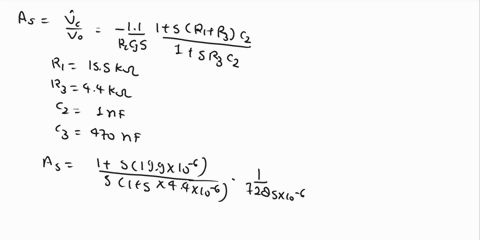 As = V̂c/Vo = -1.1/R1C3S · 1+S(R1+R3)C2 / 1+SR3C2
R1 = 15.5 kΩ
R3 = 4.4 kΩ
C2 = 1 nF
C3 = 470 nF
As = 1+ S(19.9×10^-6) / S(1+S×4.4×10^-6) · 1/7285×10^-6